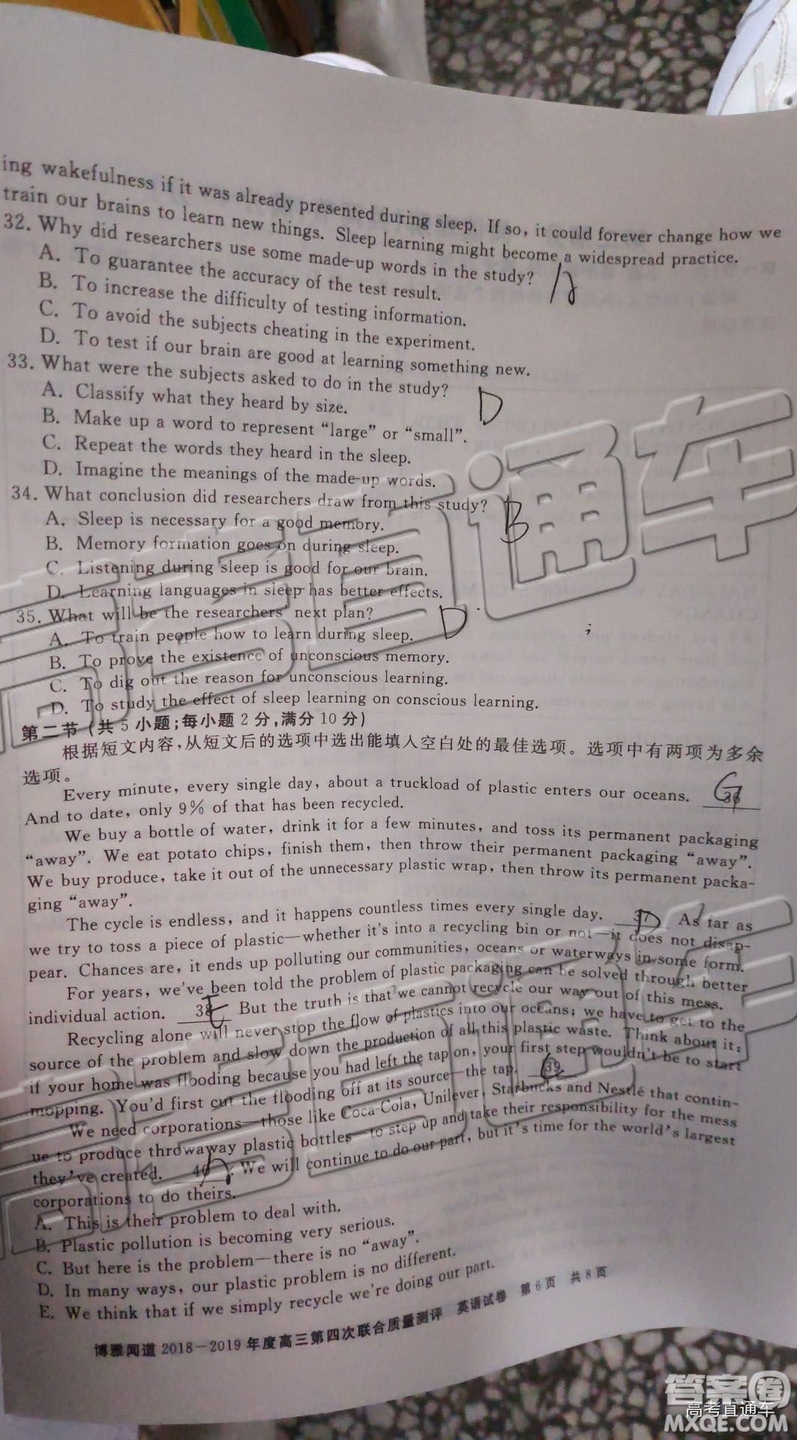 ing wakefulness if it was already presented during sleep. If so, it could forever change how we
train our brains to learn new things. Sleep learning might become a widespread practice.
32. Why did researchers use some made-up words in the study?
A. To guarantee the accuracy of the test result.
B. To increase the difficulty of testing information.
C. To avoid the subjects cheating in the experiment.
D. To test if our brain are good at learning something new.
33. What were the subjects asked to do in the study? D
A. Classify what they heard by size.
B. Make up a word to represent “large” or “small”.
C. Repeat the words they heard in the sleep.
D. Imagine the meanings of the made-up words.
34. What conclusion did researchers draw from this study? B
A. Sleep is necessary for a good memory.
B. Memory formation goes on during sleep.
C. Listening during sleep is good for our brain.
D. Learning languages in sleep has better effects.
35. What will be the researchers’ next plan? D
A. To train people how to learn during sleep.
B. To prove the existence of unconscious memory.
C. To dig out the reason for unconscious learning.
D. To study the effect of sleep learning on conscious learning.
第二节 (共 5 小题;每小题 2 分,满分 10 分)
根据短文内容,从短文后的选项中选出能填入空白处的最佳选项。选项中有两项为多余
选项。
Every minute, every single day, about a truckload of plastic enters our oceans. 36 G
And to date, only 9% of that has been recycled.
We buy a bottle of water, drink it for a few minutes, and toss its permanent packaging
“away”. We eat potato chips, finish them, then throw their permanent packaging “away”.
We buy produce, take it out of the unnecessary plastic wrap, then throw its permanent packa-
ging “away”.
The cycle is endless, and it happens countless times every single day. 37 D As far as
we try to toss a piece of plastic—whether it’s into a recycling bin or not—it does not disap-
pear. Chances are, it ends up polluting our communities, oceans or waterways in some form.
For years, we’ve been told the problem of plastic packaging can be solved through better
individual action. 38 E But the truth is that we cannot recycle our way out of this mess.
Recycling alone will never stop the flow of plastics into our oceans; we have to get to the
source of the problem and slow down the production of all this plastic waste. Think about it:
if your home was flooding because you had left the tap on, your first step wouldn’t be to start
mopping. You’d first cut the flooding off at its source—the tap. 39
We need corporations—those like Coca-Cola, Unilever, Starbucks and Nestlé that contin-
ue to produce throwaway plastic bottles—to step up and take their responsibility for the mess
they’ve created. 40 We will continue to do our part, but it’s time for the world’s largest
corporations to do theirs.
A. This is their problem to deal with.
B. Plastic pollution is becoming very serious.
C. But here is the problem—there is no “away”.
D. In many ways, our plastic problem is no different.
E. We think that if we simply recycle we’re doing our part.
博雅闻道 2018—2019 年度高三第四次联合质量测评 英语试卷 第 6 页 共 8 页
高考直通车
高考直通车
答案圈
高考直通车
MXQE.COM